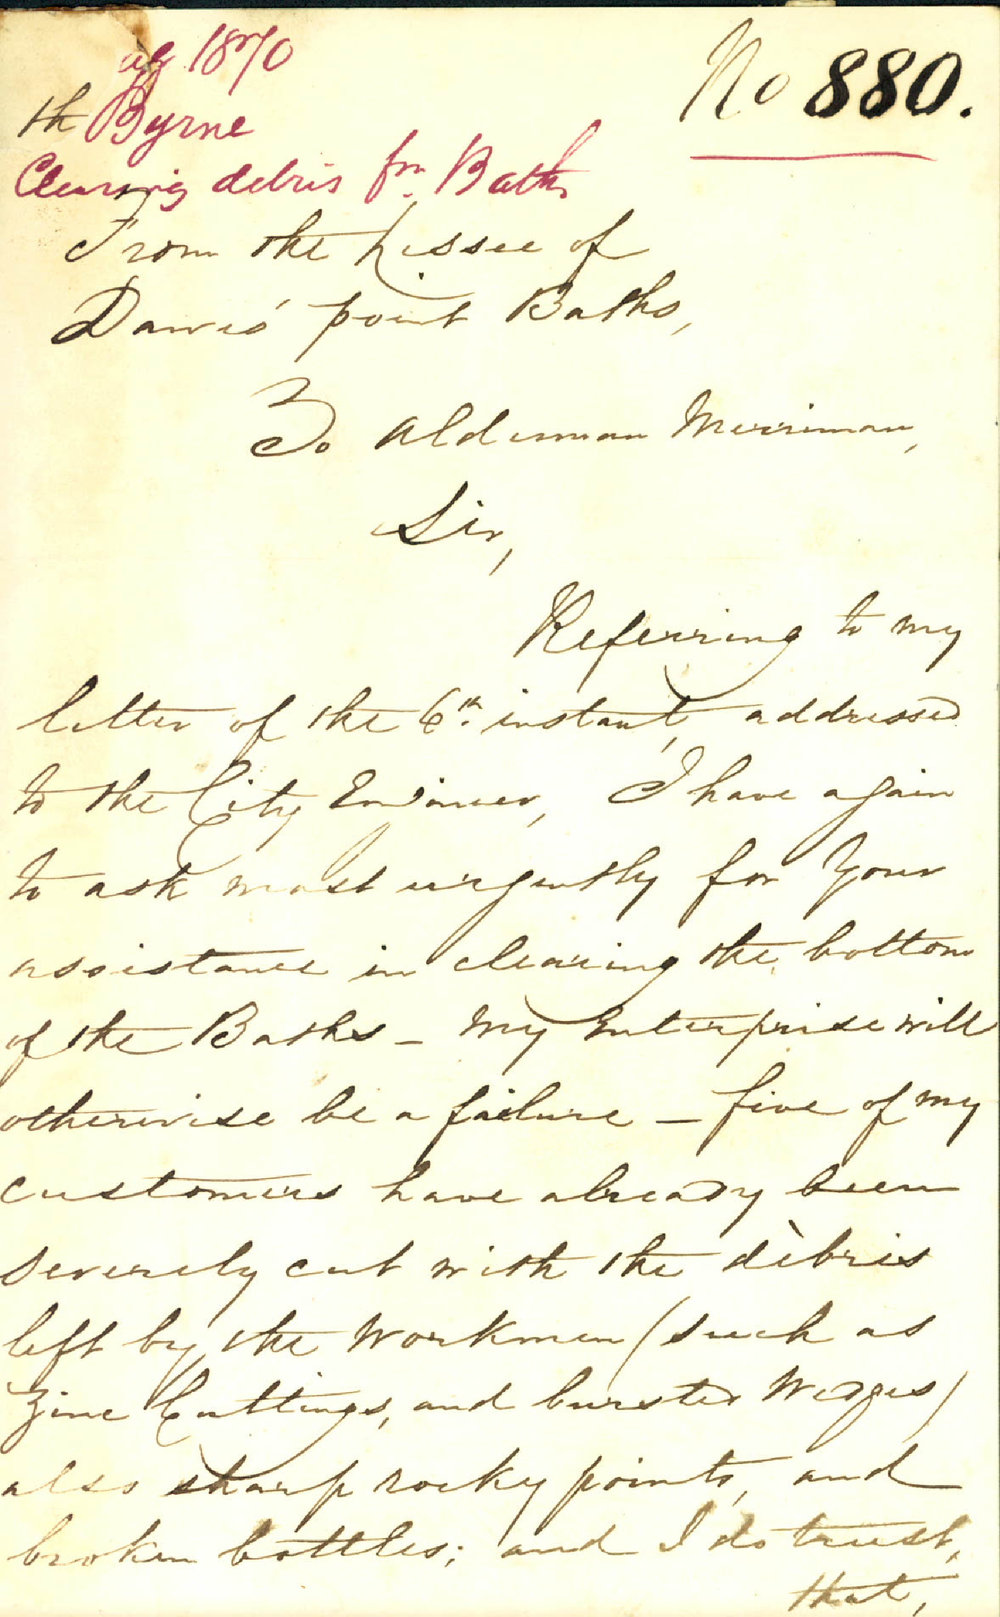 1870
No 880.
Th Byrne
Clearing debris fm Baths
From the Lessee of
Dawes' point Baths,
To Alderman Merriman,
Sir,
Referring to my
letter of the 6th instant, addressed
to the City Engineer, I have again
to ask most urgently for Your
assistance in clearing the bottom
of the Baths – My Enterprise will
otherwise be a failure – five of my
customers have already been
severely cut with the dèbris
left by the Workmen (such as
Zinc Cuttings, and bursted Wedges)
also sharp rocky points, and
broken bottles; and I do trust,
that,